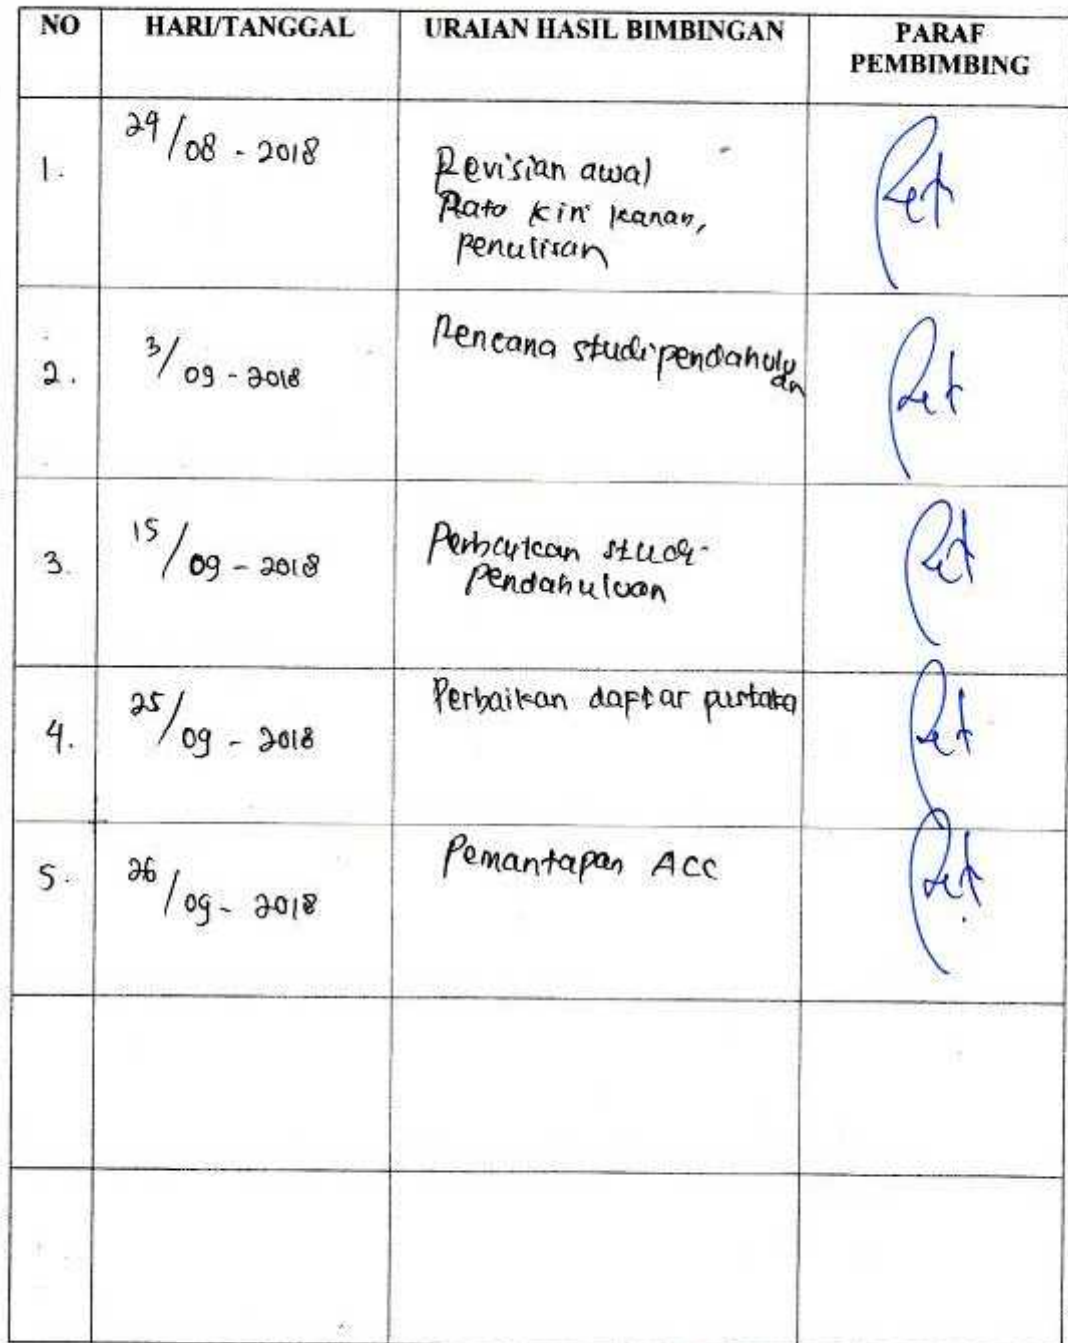 NO HARI/TANGGAL URAIAN HASIL BIMBINGAN PARAF
PEMBIMBING
1. 29/08 - 2018 Revisian awal
Rata kiri kanan,
penulisan
2. 3/09 - 2018 Rencana studi pendahuluan
3. 15/09 - 2018 Perbaikan studi
pendahuluan
4. 25/09 - 2018 Perbaikan daftar pustaka
5. 26/09 - 2018 Pemantapan ACC